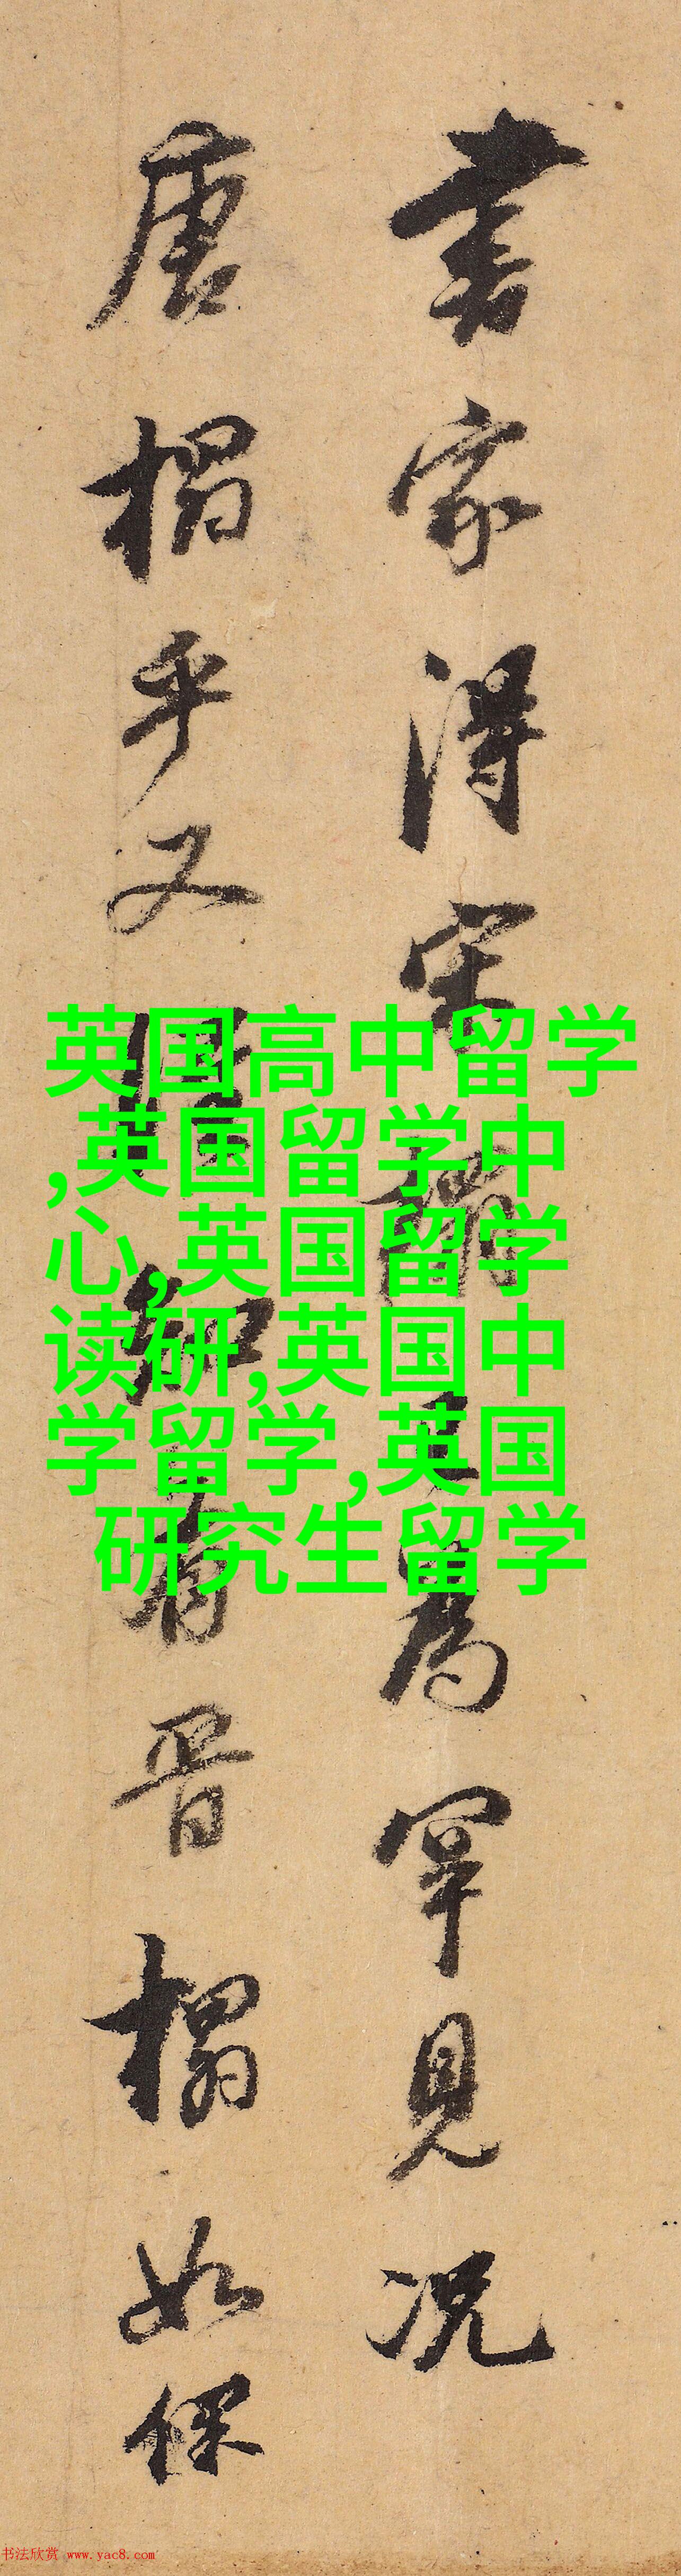 書家得宋搨已為罕見況
唐搨乎又烏知有晋搨如保
英国高中留学
,英国留学中
心,英国留学
读研,英国中
学留学,英国
研究生留学
书法欣赏 www.yac8.com